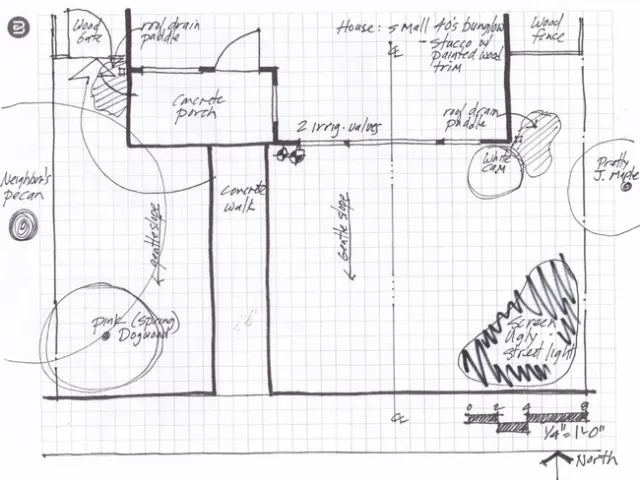 2
Wood
Gate
roof drain
paddle
House: small 40's bunglow
- stucco w/
painted wood
trim
Wood
fence
Concrete
porch
roof drain
paddle
2 irrig. valves
White
Cam
Pretty
J. Maple
Neighbor's
pecan
Concrete
Walk
gentle slope
Gentle slope
Pink (Spring)
Dogwood
Screen
Ugly
Street light
0 2 4 8
1/4"=1'-0"
North